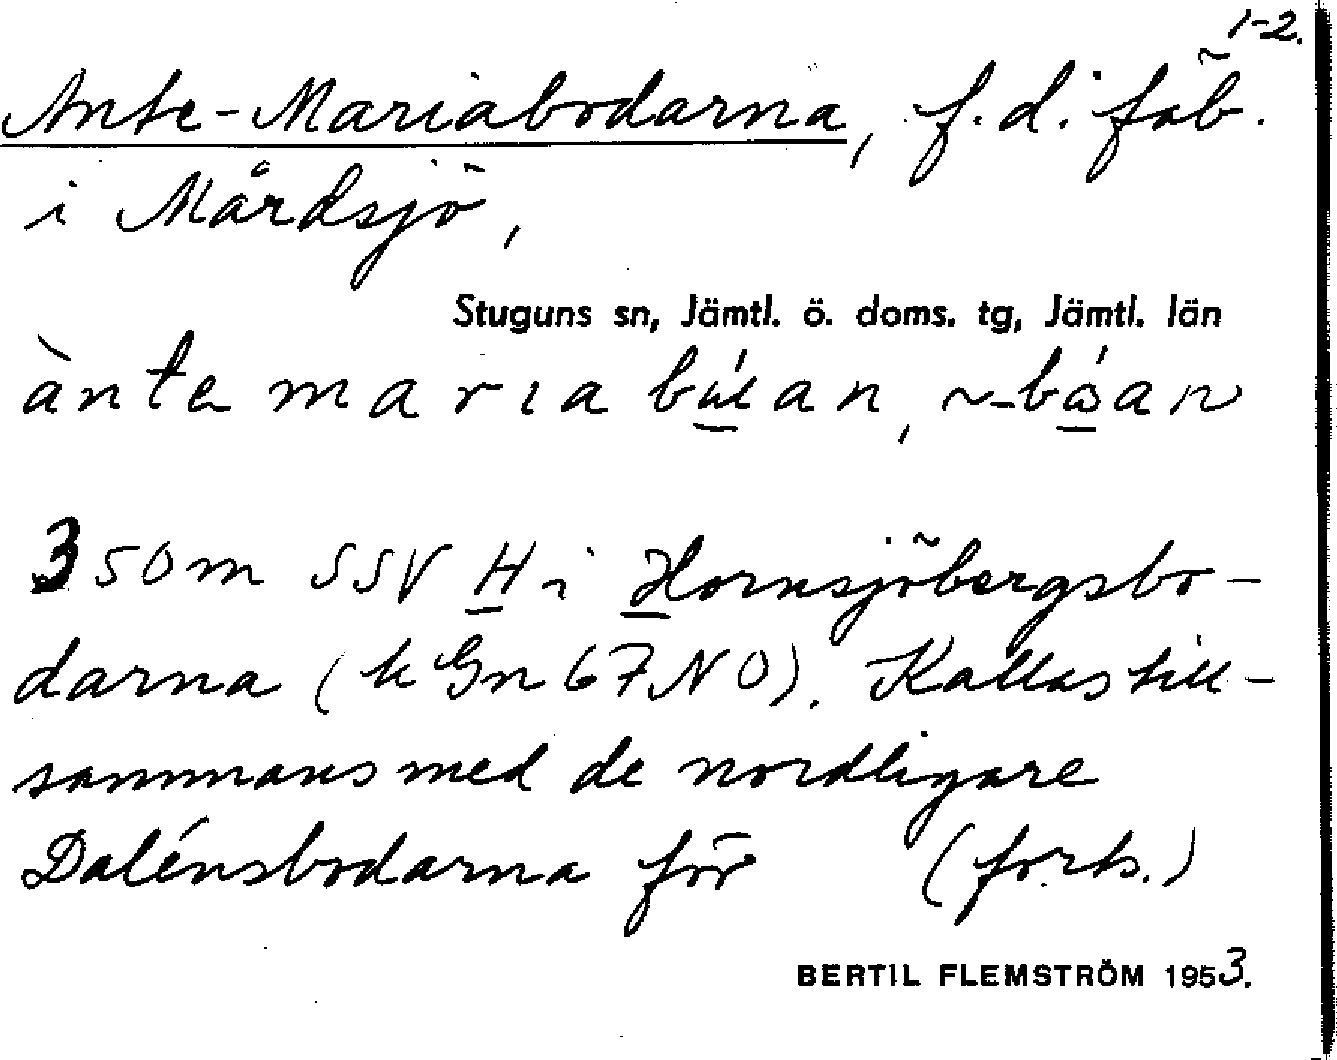 1-2.
Ante-Mariabodarna, f.d. fäb.
i Mårdsjö,
Stuguns sn, Jämtl. ö. doms. tg, Jämtl. län
ànte maria
350 m SSV H i Hornsjöbergsbo-
darna (k Gn 67 NO). Kallas till-
sammans med de nordligare
Dalénsbodarna för (forts.)
BERTIL FLEMSTRÖM 1953.